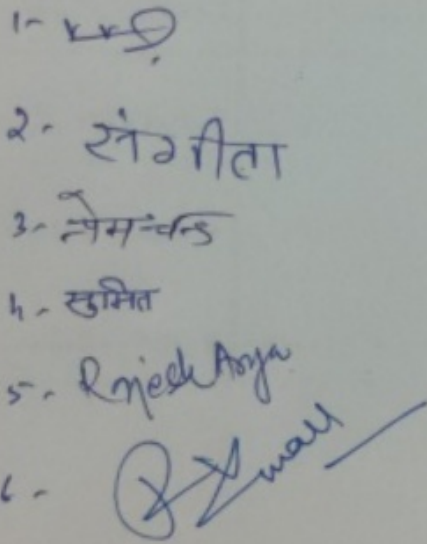 1-
2- संगीता
3- नेमचन्द
4- सुमित
5- Rajesh Arya
6-